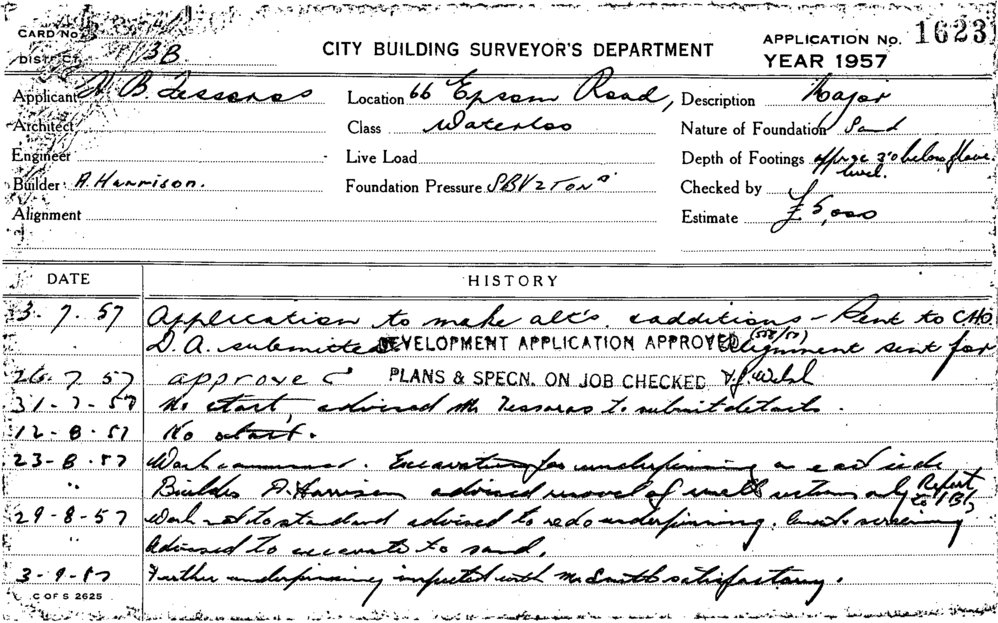 CARD No.
DISTRICT 3B
CITY BUILDING SURVEYOR'S DEPARTMENT
APPLICATION No. 1623
YEAR 1957
Applicant B. Tessaros
Location 66 Epsom Road,
Description Major
Architect
Class Waterloo
Nature of Foundation Sand
Engineer
Live Load
Depth of Footings 3'0 below floor level.
Builder A. Harrison.
Foundation Pressure
Checked by
Alignment
Estimate £5,000
DATE
HISTORY
3.7.57 Application to make alt's & additions - sent to C.H.O.
D.A. submitted DEVELOPMENT APPLICATION APPROVED alignment sent for
26.7.57 approved PLANS & SPECN. ON JOB CHECKED Welsh
31-7-57 No start, advised Mr Tessaros to submit details.
12-8-57 No start.
23-8-57 Work commenced. Excavating for underpinning on east side
" Builder A. Harrison advised removal of wall return only Report to
29-8-57 Work not to standard advised to redo underpinning.
" Advised to excavate to sand.
3-9-57 Further underpinning inspected with Mr Smith satisfactory.
C OF S 2625